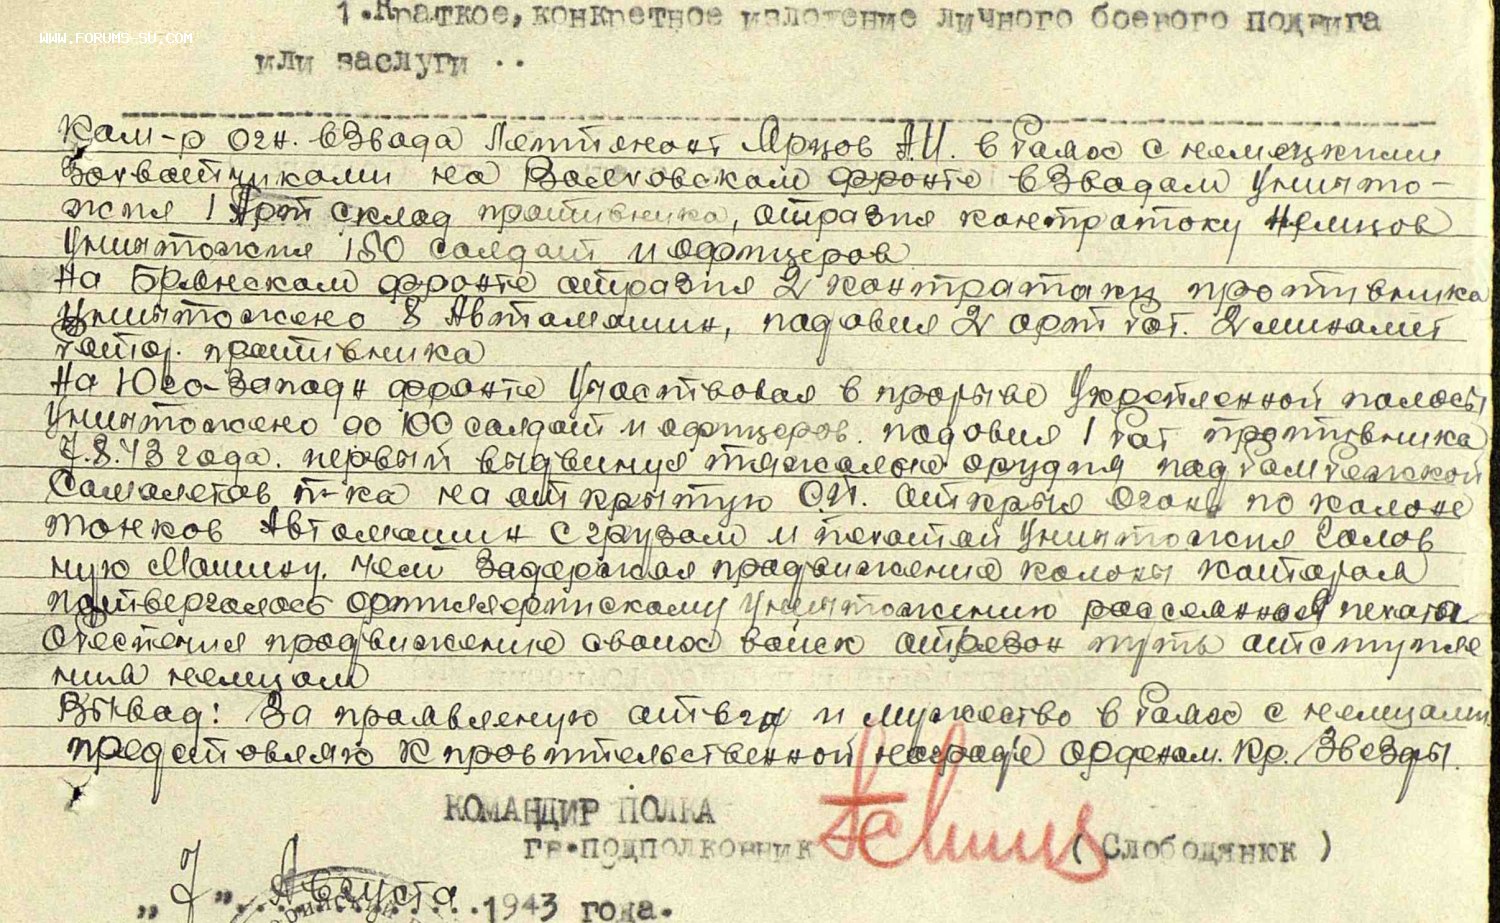 1. Краткое, конкретное изложение личного боевого подвига
WWW.FORUMS-SU.COM
или заслуги ..
Ком-р огн. взвода Лейтенант Ярцов А.И. в боях с немецкими
захватчиками на Волховском фронте взводам уничто-
жил 1 Арт склад противника, отразил контратоку немцов
уничтожил 150 солдат и офицеров
На Брянском фронте отразил 2 контратаки противника
уничтожено 8 Автомашин, подовил 2 арт бат. 2 миномет
батар. противника
На Юго-Западн фронте участвовал в прорыве укрепленной полосы
уничтожено до 100 солдат и офицеров. подовил 1 бат противника
7.8.43 года. первый выдвинул тяжолые орудия под бомбежкой
самолетов п-ка на открытую О.П. открыл огонь по колоне
танков Автомашин с грузом и пехотой уничтожил голов
ную Машину. чем задержал продвижение колоны которая
потвергалось артиллерискому уничтожению рассеянной пехоты
обеспечил продвижение своих войск отрезан путь отступле
ния немцам
Вывод: За проявленую отвагу и мужество в боях с немцами
представляю к провительственной награде орденом. Кр. Звезды.
КОМАНДИР ПОЛКА
гв.подполковник ( Слободянюк )
„ 7 ". Августа
1943 года.